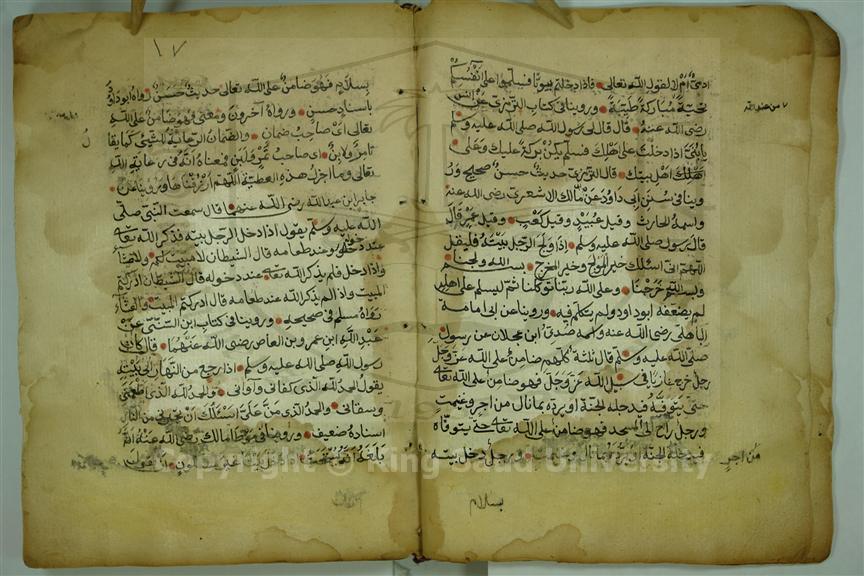 ادمي ام لا لقول الله تعالى فاذا دخلتم بيوتا فسلموا على انفسكم
تحية مباركة طيبة وروينا في كتاب الترمذي عن انس
رضى الله عنه قال قال لى رسول الله صلى الله عليه وسلم
يا بني اذا دخلت على اهلك فسلم يكن بركة عليك وعلى
اهل بيتك قال الترمذي حديث حسن صحيح ور
وينا في سنن ابي داود عن مالك الاشعري رضى الله عنه
واسمه الحارث وقيل عبيد وقيل كعب وقيل عمر قال
قال رسول صلى الله عليه وسلم اذا ولج الرجل بيته فليقل
اللهم اني اسئلك خير المولج وخير المخرج بسم الله ولجنا
وبسم الله خرجنا وعلى الله ربنا توكلنا ثم ليسلم على اهله
لم يضعفه ابو داود ولم يتكلم فيه وروينا عن ابى امامة
الباهلى رضى الله عنه واسمه صدى ابن عجلان عن رسول
صلى الله عليه وسلم قال ثلثة كلهم ضامن على الله عز وجل
رجل خرج غازيا في سبيل الله عز وجل فهو ضامن على الله تعالى
حتى يتوفيه فيدخله الجنة او يرده بما نال من اجر وغنيمت
ورجل راح الى المسجد فهو ضامن على الله تعالى حتى يتوفاه
فيدخله الجنة او يرده بما نال وغنيمت ورجل دخل بيته
من اجر
بسلام
١٧
بسلام فهو ضامن على الله تعالى حديث حسن رواه ابو داود
باسناد حسن ورواه آخرون ومعنى فهو ضامن على الله
تعالى اى صاحب ضمان والضمان الرعاية للشيئ كما يقا
تامر ولابن اى صاحب تمر ولبن فمعناه انه في رعاية الله
تعالى وما اجزل هذه العطية اللهم ارزقناها وروينا عن
جابر ابن عبد الله رضى الله عنهما قال سمعت النبي صلى
الله عليه وسلم يقول اذا دخل الرجل بيته فذكر الله تعالى
عند دخوله وعند طعامه قال الشيطان لا مبيت لكم ولا عشاء
واذا دخل فلم يذكر الله تعالى عند دخوله قال الشيطان ادركتم
المبيت واذا لم يذكر الله عند طعامه قال ادركتم المبيت والعشاء
رواه مسلم في صحيحه وروينا في كتاب ابن السني عن
عبد الله ابن عمرو بن العاص رضى الله عنهما قال كان
رسول الله صلى الله عليه وسلم اذا رجع من النهار الى بيته
يقول الحمد لله الذى كفانى وآوانى والحمد لله الذى اطعمنى
وسقانى والحمد لله الذى من على اسئلك ان تجيرنى من النار
اسناده ضعيف وروينا في موطأ مالك رضى الله عنه انه
بلغه انه يستحب